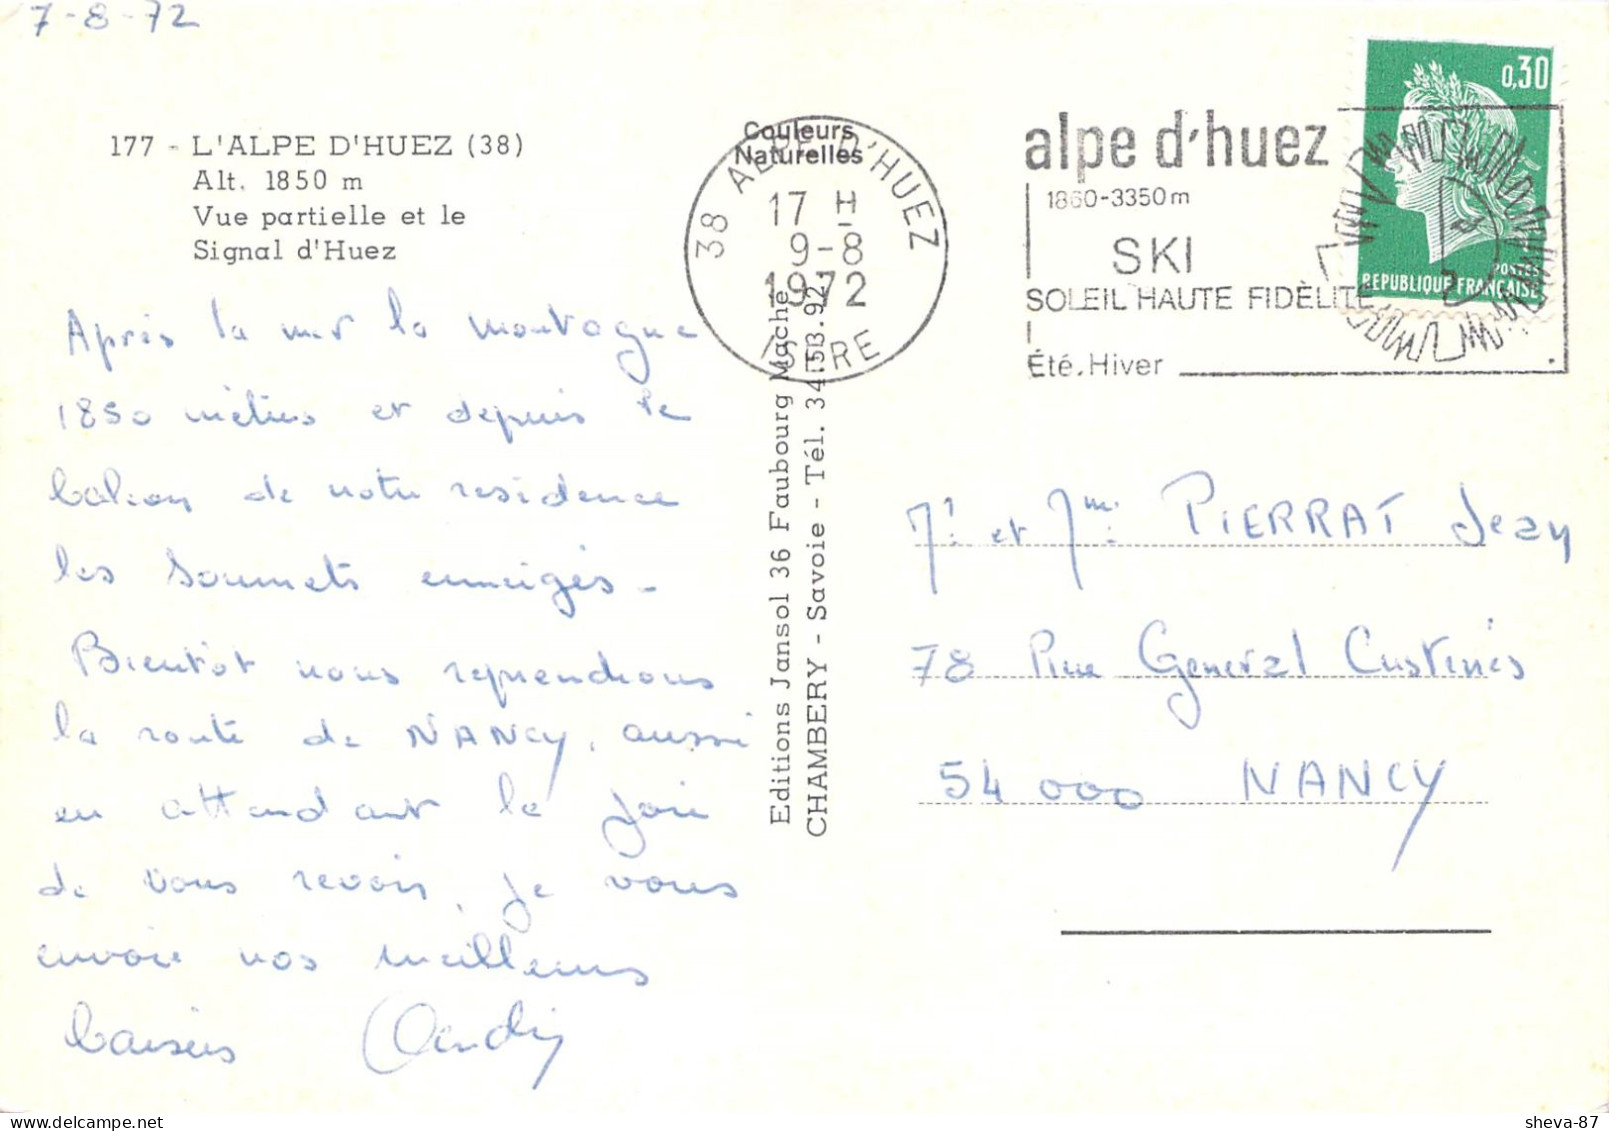 7-8-72
177 - L'ALPE D'HUEZ (38)
Alt. 1850 m
Vue partielle et le
Signal d'Huez
Après la mer la montagne
1850 mètres et depuis le
balcon de notre residence
les sommets enneigés -
Bientôt nous reprendrons
la route de NANCY, aussi
en attendant la joie
de vous revoir, je vous
envoie nos meilleurs
baisers
Couleurs
Naturelles
38 ALPE D'HUEZ
17 H
9-8
1972
ISERE
Editions Jansol 36 Faubourg Mache
CHAMBERY - Savoie - Tél. 34.53.92
alpe d'huez
1860-3350m
SKI
SOLEIL HAUTE FIDÈLITÉ
Été. Hiver
0,30
POSTES
REPUBLIQUE FRANÇAISE
Mr et Mme PIERRAT Jean
78 Rue General Custines
54 000 NANCY
sheva-87